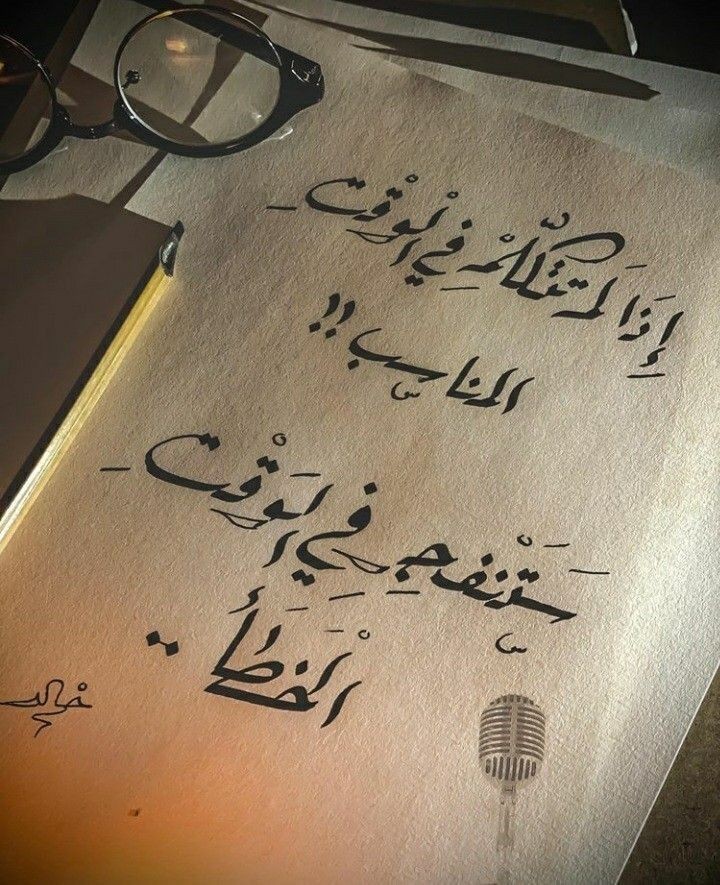 إِذَا لَم تَتكلّمْ فِي الْوْقْتِ
المناسب !!
سَتَنْفجِر فِي الوَقْتِ
الْخَطَأ ..
خالد